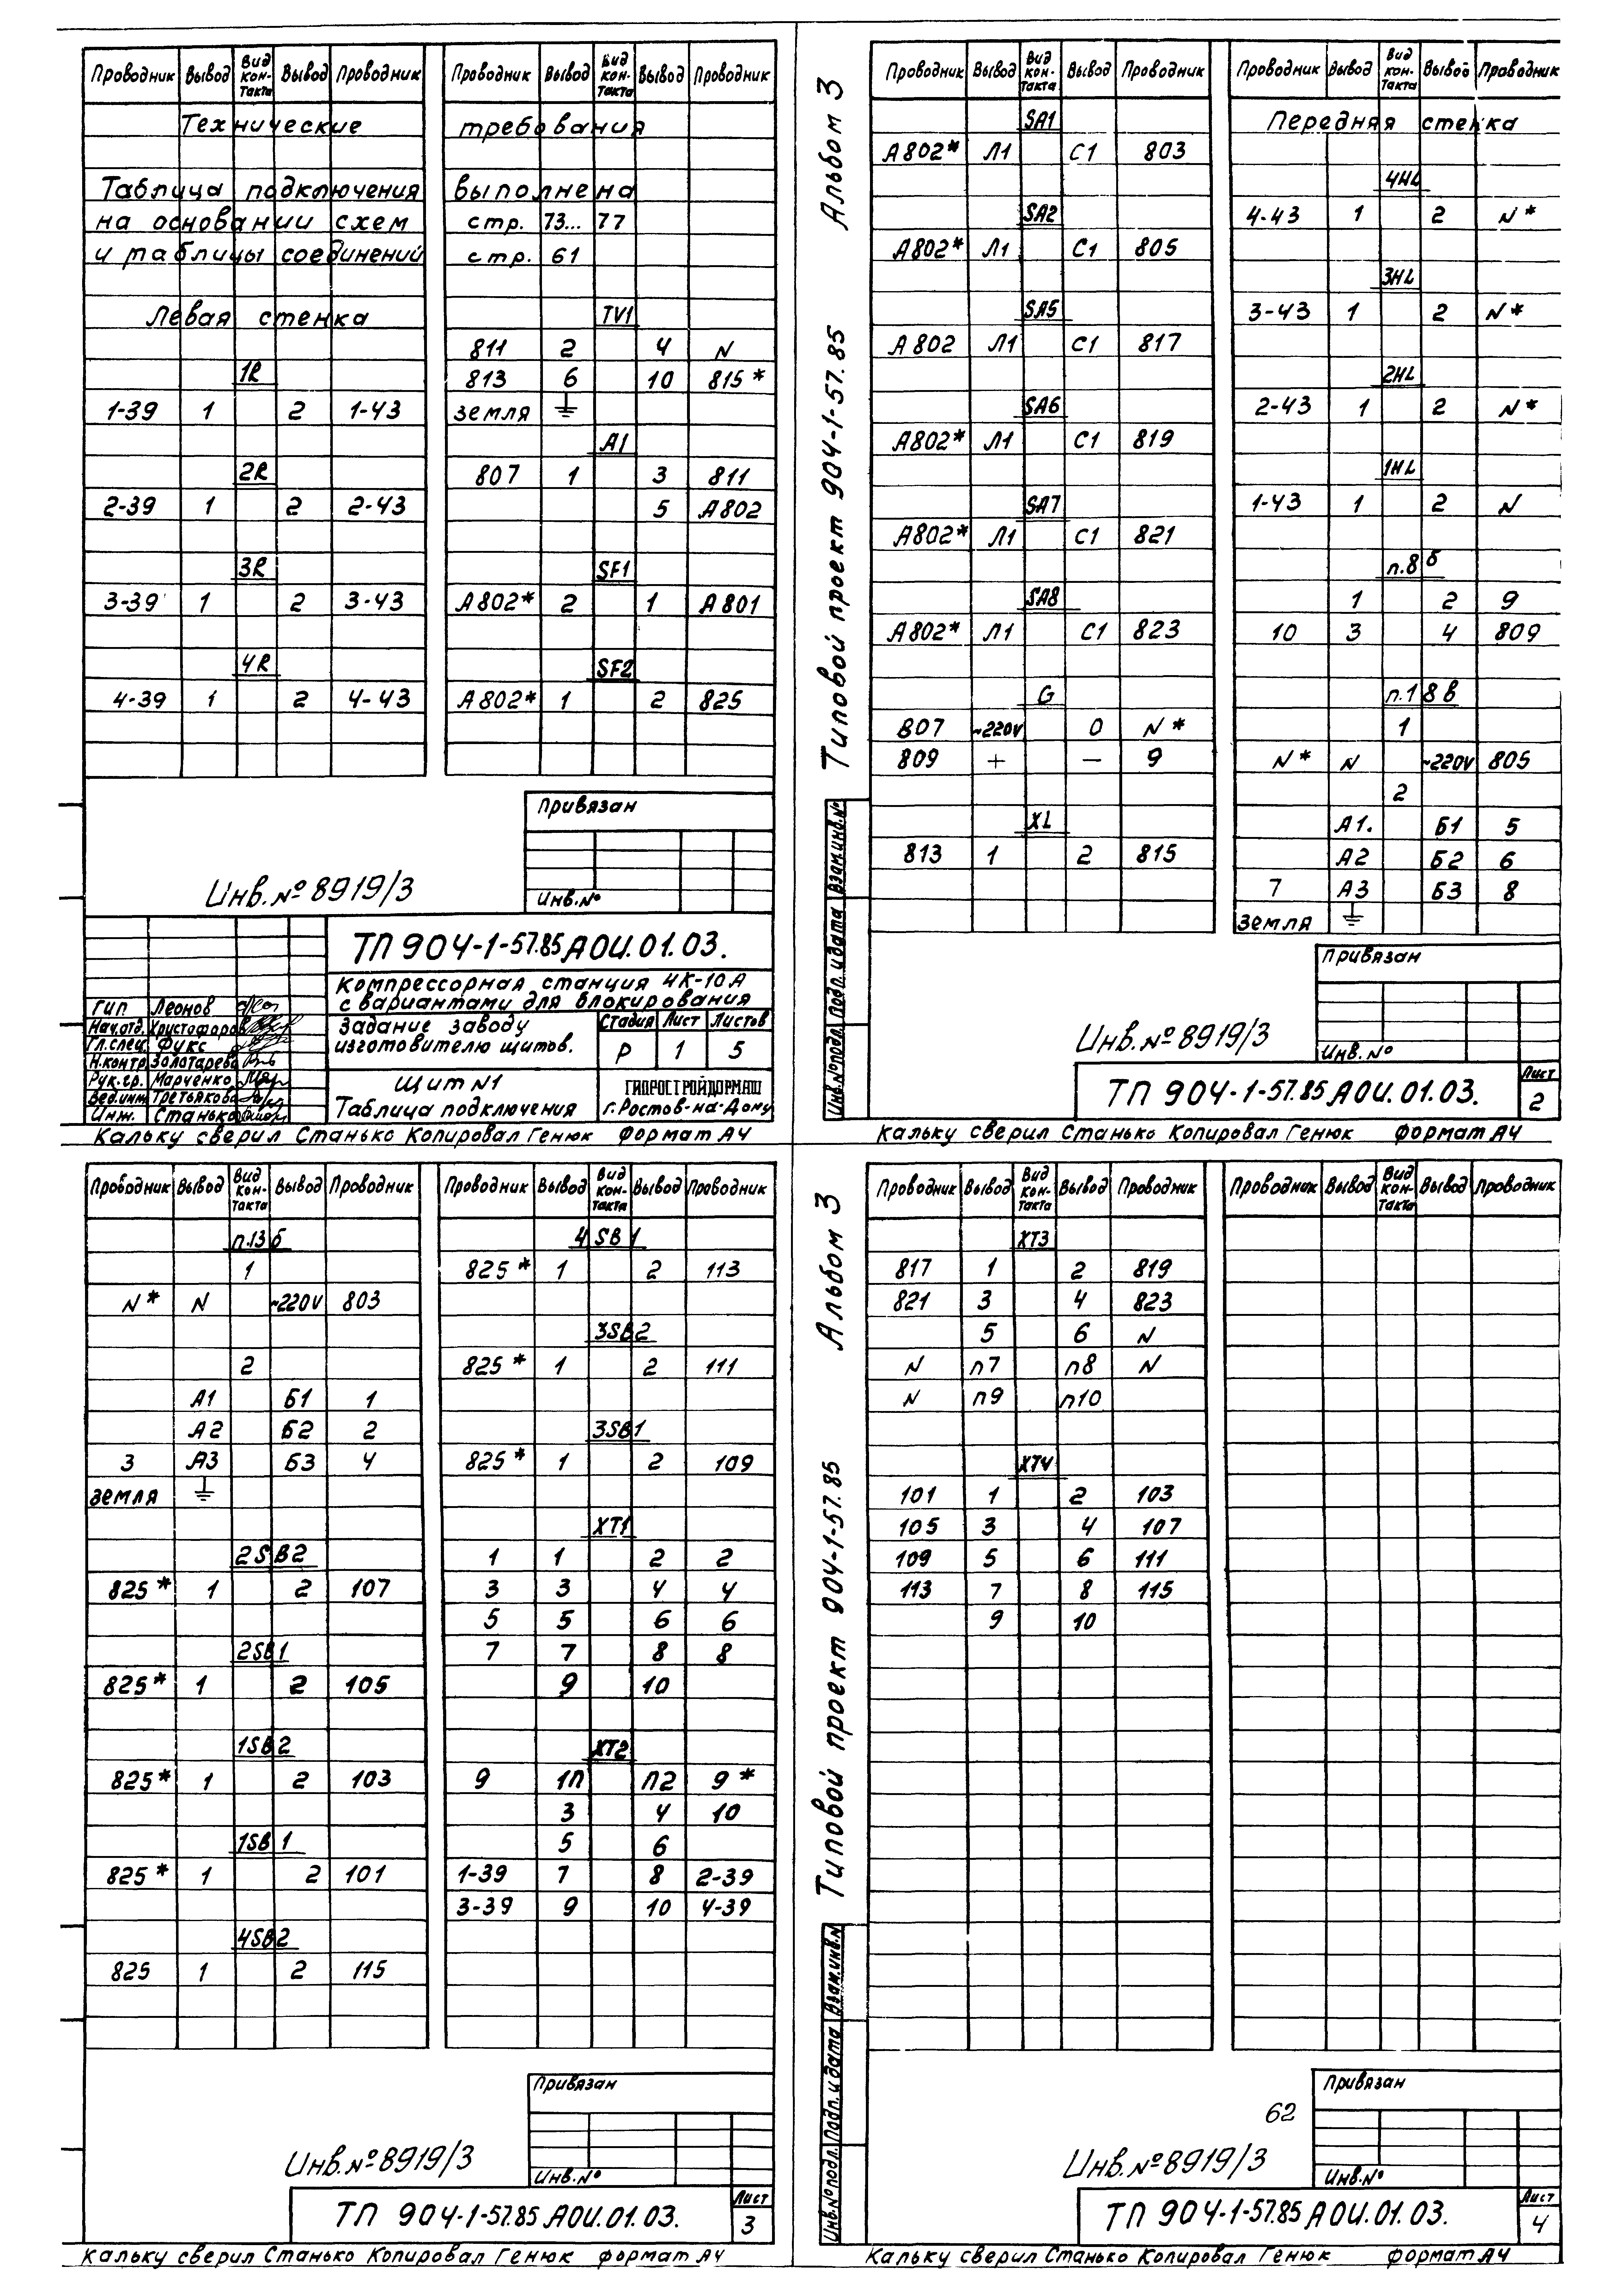 Проводник Вывод Вид контакта Вывод Проводник
Технические
Таблица подключения
на основании схем
и таблицы соединений
Левая стенка
1R
1-39 1 2 1-43
2R
2-39 1 2 2-43
3R
3-39 1 2 3-43
4R
4-39 1 2 4-43
Проводник Вывод Вид контакта Вывод Проводник
требования
выполнена
стр. 73... 77
стр. 61
TV1
811 2 4 N
813 6 10 815*
земля ⏚
A1
807 1 3 811
5 A802
SF1
A802* 2 1 A801
SF2
A802* 1 2 825
Привязан
Инв.№
Инв.№8919/3
ТП 904-1-57.85 АОИ.01.03.
Компрессорная станция 4К-10А
с вариантами для блокирования
Гип Леонов
Нач.отд. Христофоров
Гл.спец. Фукс
Н.контр. Золотарева
Рук.гр. Марченко
Вед.инж. Третьякова
Инж. Станько
Задание заводу
изготовителю щитов.
Стадия Лист Листов
Р 1 5
Щит N1
Таблица подключения
ГИПРОСТРОЙДОРМАШ
г.Ростов-на-Дону
Кальку сверил Станько Копировал Генюк формат А4
Альбом 3
Типовой проект 904-1-57.85
Инв.№подл. Подп. и дата Взам.инв.№
Проводник Вывод Вид контакта Вывод Проводник
SA1
A802* Л1 С1 803
SA2
A802* Л1 С1 805
SA5
A802 Л1 С1 817
SA6
A802* Л1 С1 819
SA7
A802* Л1 С1 821
SA8
A802* Л1 С1 823
G
807 ~220V 0 N*
809 + — 9
XL
813 1 2 815
Проводник Вывод Вид контакта Вывод Проводник
Передняя стенка
4HL
4-43 1 2 N*
3HL
3-43 1 2 N*
2HL
2-43 1 2 N*
1HL
1-43 1 2 N
п.8б
1 2 9
10 3 4 809
п.18в
1
N* N ~220V 805
2
А1. Б1 5
А2 Б2 6
7 А3 Б3 8
земля ⏚
Привязан
Инв.№
Инв.№8919/3
ТП 904-1-57.85 АОИ.01.03.
Лист
2
Кальку сверил Станько Копировал Генюк формат А4
Проводник Вывод Вид контакта Вывод Проводник
п.13б
1
N* N ~220V 803
2
А1 Б1 1
А2 Б2 2
3 А3 Б3 4
земля ⏚
2SB2
825* 1 2 107
2SB1
825* 1 2 105
1SB2
825* 1 2 103
1SB1
825* 1 2 101
4SB2
825 1 2 115
Проводник Вывод Вид контакта Вывод Проводник
4SB1
825* 1 2 113
3SB2
825* 1 2 111
3SB1
825* 1 2 109
XT1
1 1 2 2
3 3 4 4
5 5 6 6
7 7 8 8
9 10
XT2
9 1П П2 9*
3 4 10
5 6
1-39 7 8 2-39
3-39 9 10 4-39
Привязан
Инв.№
Инв.№8919/3
ТП 904-1-57.85 АОИ.01.03.
Лист
3
Кальку сверил Станько Копировал Генюк формат А4
Альбом 3
Типовой проект 904-1-57.85
Инв.№подл. Подп. и дата Взам.инв.№
Проводник Вывод Вид контакта Вывод Проводник
XT3
817 1 2 819
821 3 4 823
5 6 N
N п7 п8 N
N п9 п10
XT4
101 1 2 103
105 3 4 107
109 5 6 111
113 7 8 115
9 10
Проводник Вывод Вид контакта Вывод Проводник
Привязан
62
Инв.№
Инв.№8919/3
ТП 904-1-57.85 АОИ.01.03.
Лист
4
Кальку сверил Станько Копировал Генюк формат А4